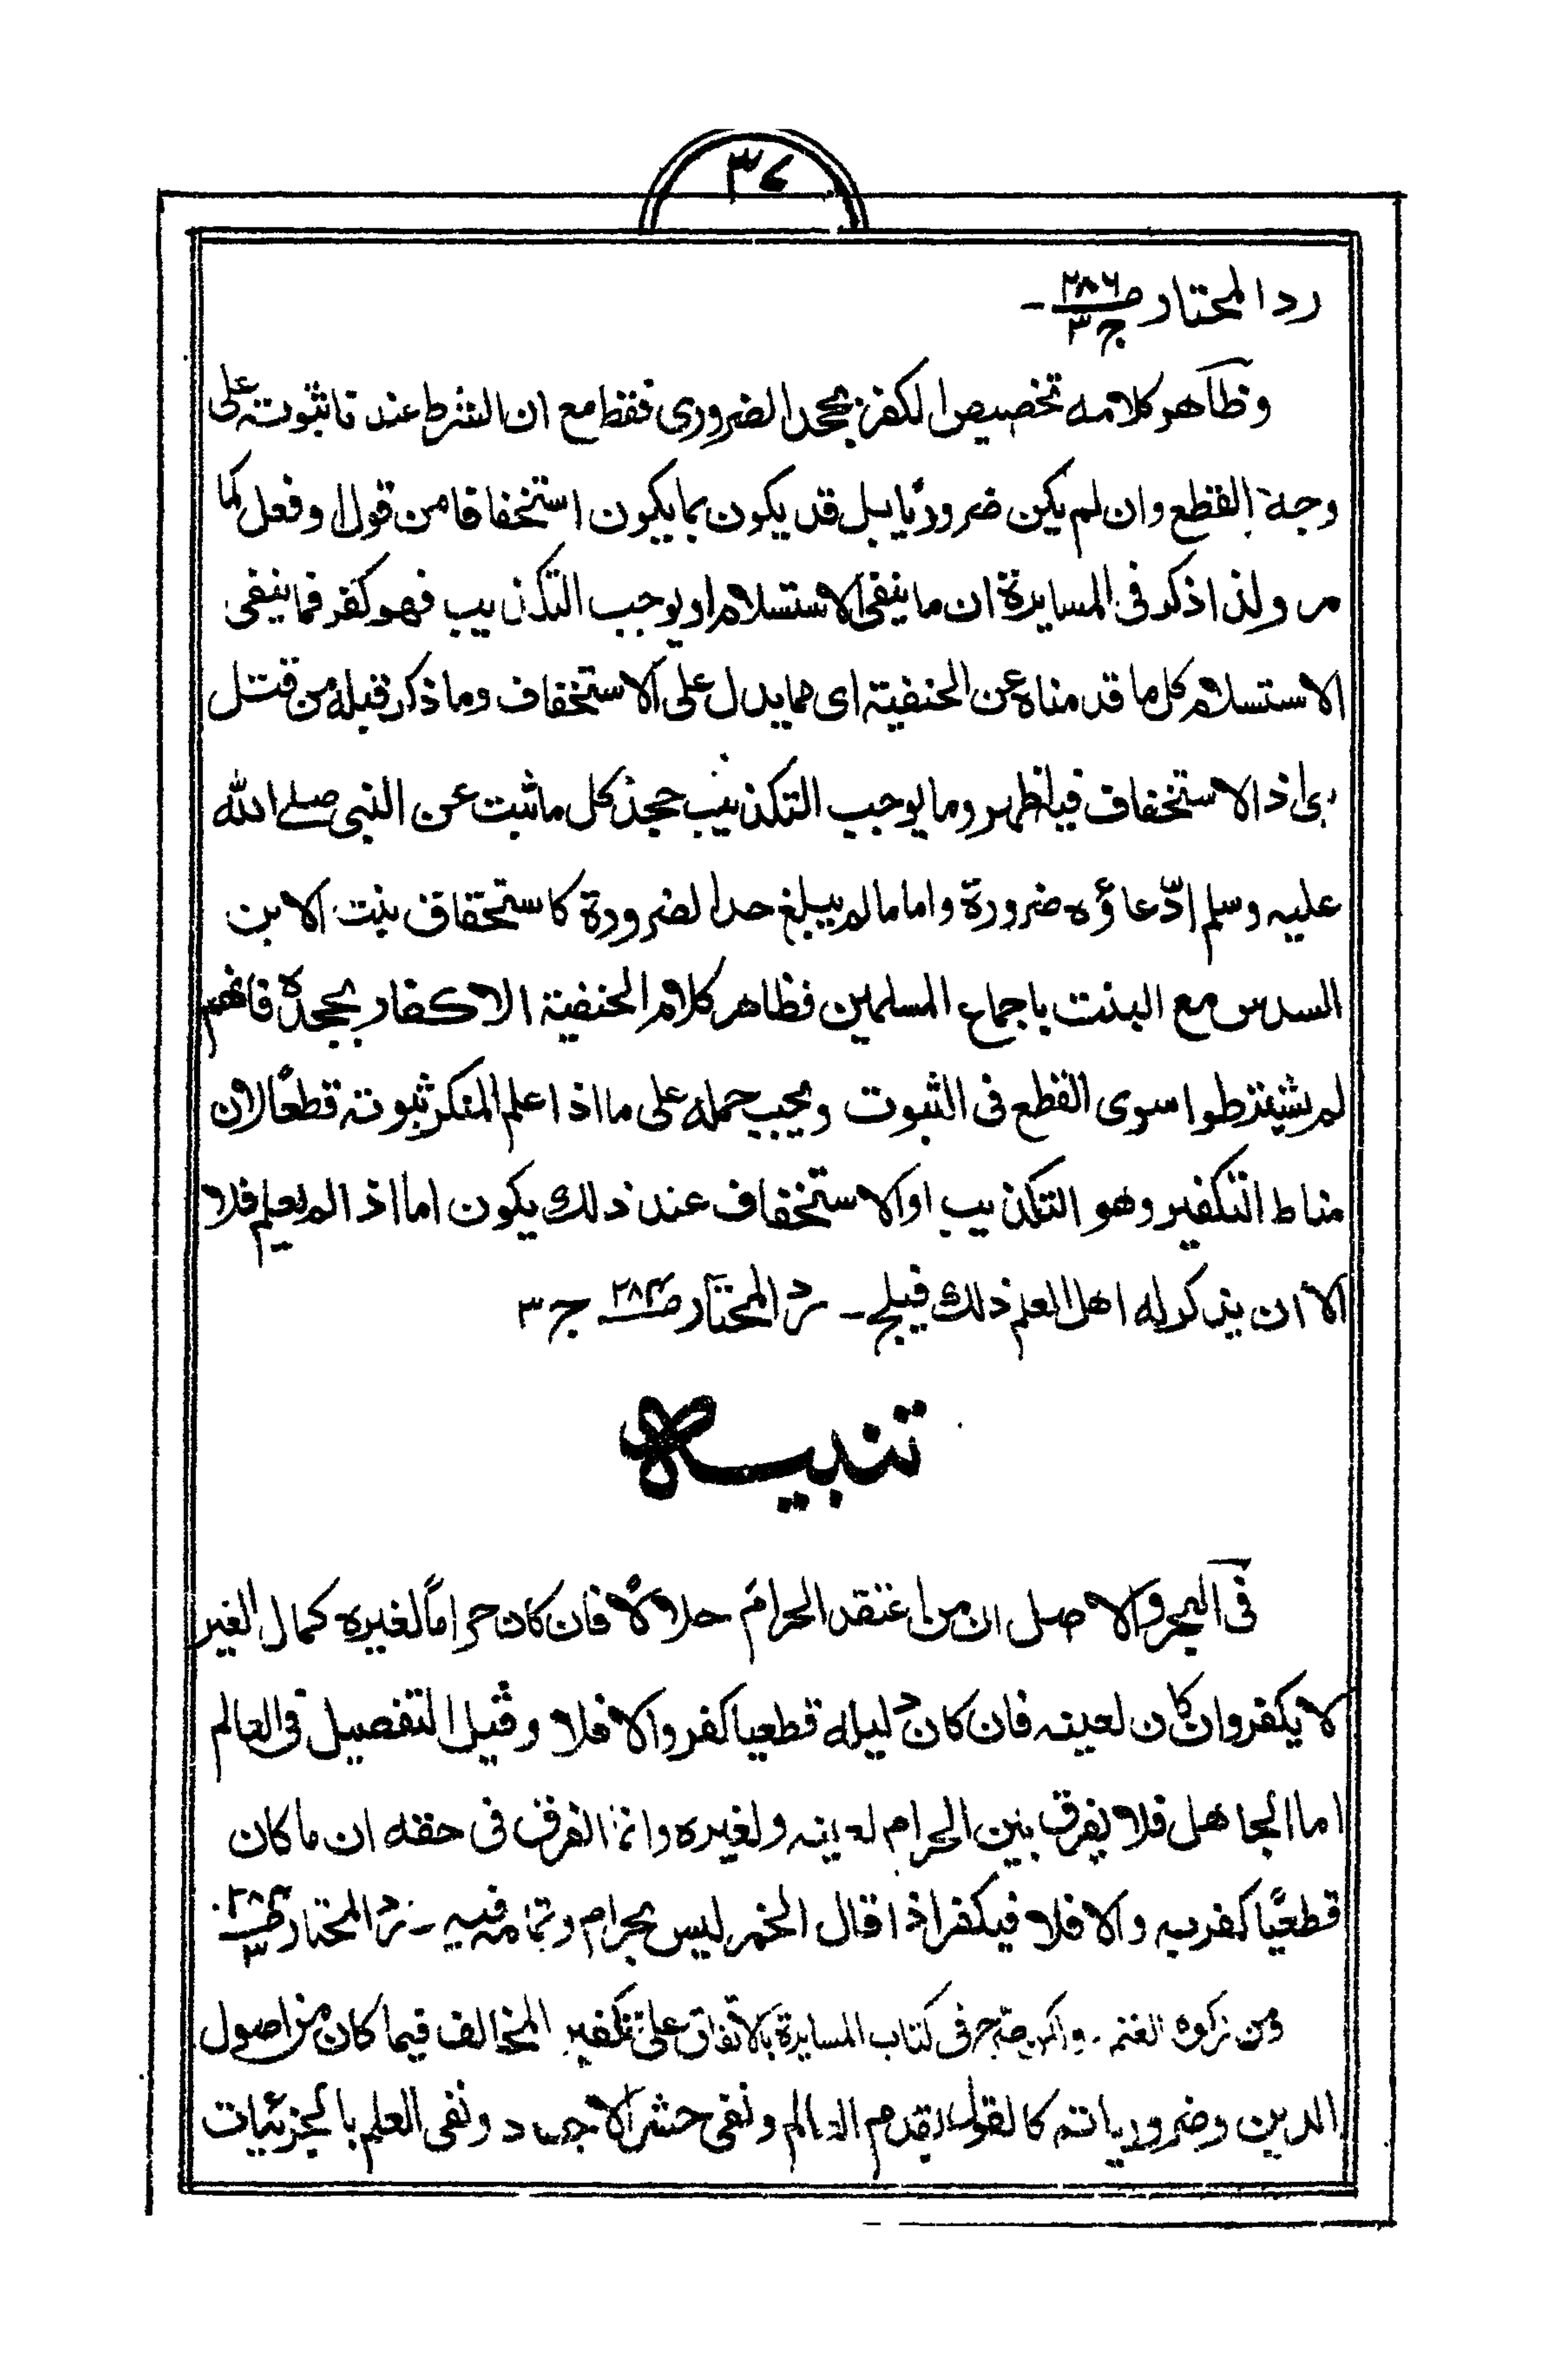 ٣٧
رد المحتار ص ٢٨٦ ج ٣ ـ
وظاهر كلامه تخصيص الكفر بجحد الضرورى فقط مع ان الشرط عندنا ثبوته على
وجه القطع وان لم يكن ضروريا بل قد يكون بما يكون استخفافا من قول او فعل كما
مر ولذا ذكر فى المسايرة ان ما ينفى الاستسلام او يوجب التكذيب فهو كفر فما ينفى
الاستسلام كل ما قدمناه عن الحنفية اى مما يدل على الاستخفاف وما ذكر قبله من قتل
نبى اذ الاستخفاف فيه اظهر وما يوجب التكذيب جحد كل ما ثبت عن النبى صلے الله
عليه وسلم ادّعاؤه ضرورة واما ما لم يبلغ حد الضرورة كاستحقاق بنت الابن
السدس مع البنت باجماع المسلمين فظاهر كلام الحنفية الاكفار بجحده فانهم
لم يشترطوا سوى القطع فى الثبوت ويجب حمله على ما اذا علم المنكر ثبوته قطعًا لان
مناط التكفير وهو التكذيب او الاستخفاف عند ذلك يكون اما اذا لم يعلم فلا
الا ان يذكر له اهل العلم ذلك فيلج ـ رد المحتار ص ٢٨٤ ج ٣
تنبيه
فى البحر والاصل ان من اعتقد الحرام حلالًا فان كان حراماً لغيره كمال الغير
لا يكفر وان كان لعينه فان كان دليله قطعيا كفر والا فلا وقيل التفصيل فى العالم
اما الجاهل فلا يفرق بين الحرام لعينه ولغيره وانما الفرق فى حقه ان ما كان
قطعيًا كفر به والا فلا فيكفر اذا قال الخمر ليس بحرام وتمامه فيه ـ رد المحتار ص ٢٨٤ ٣
صرح فى كتاب المسايرة بالاتفاق على تكفير المخالف فيما كان من اصول
الدين وضرورياته كالقول بقدم العالم ونفى حشر الاجساد ونفى العلم بالجزئيات